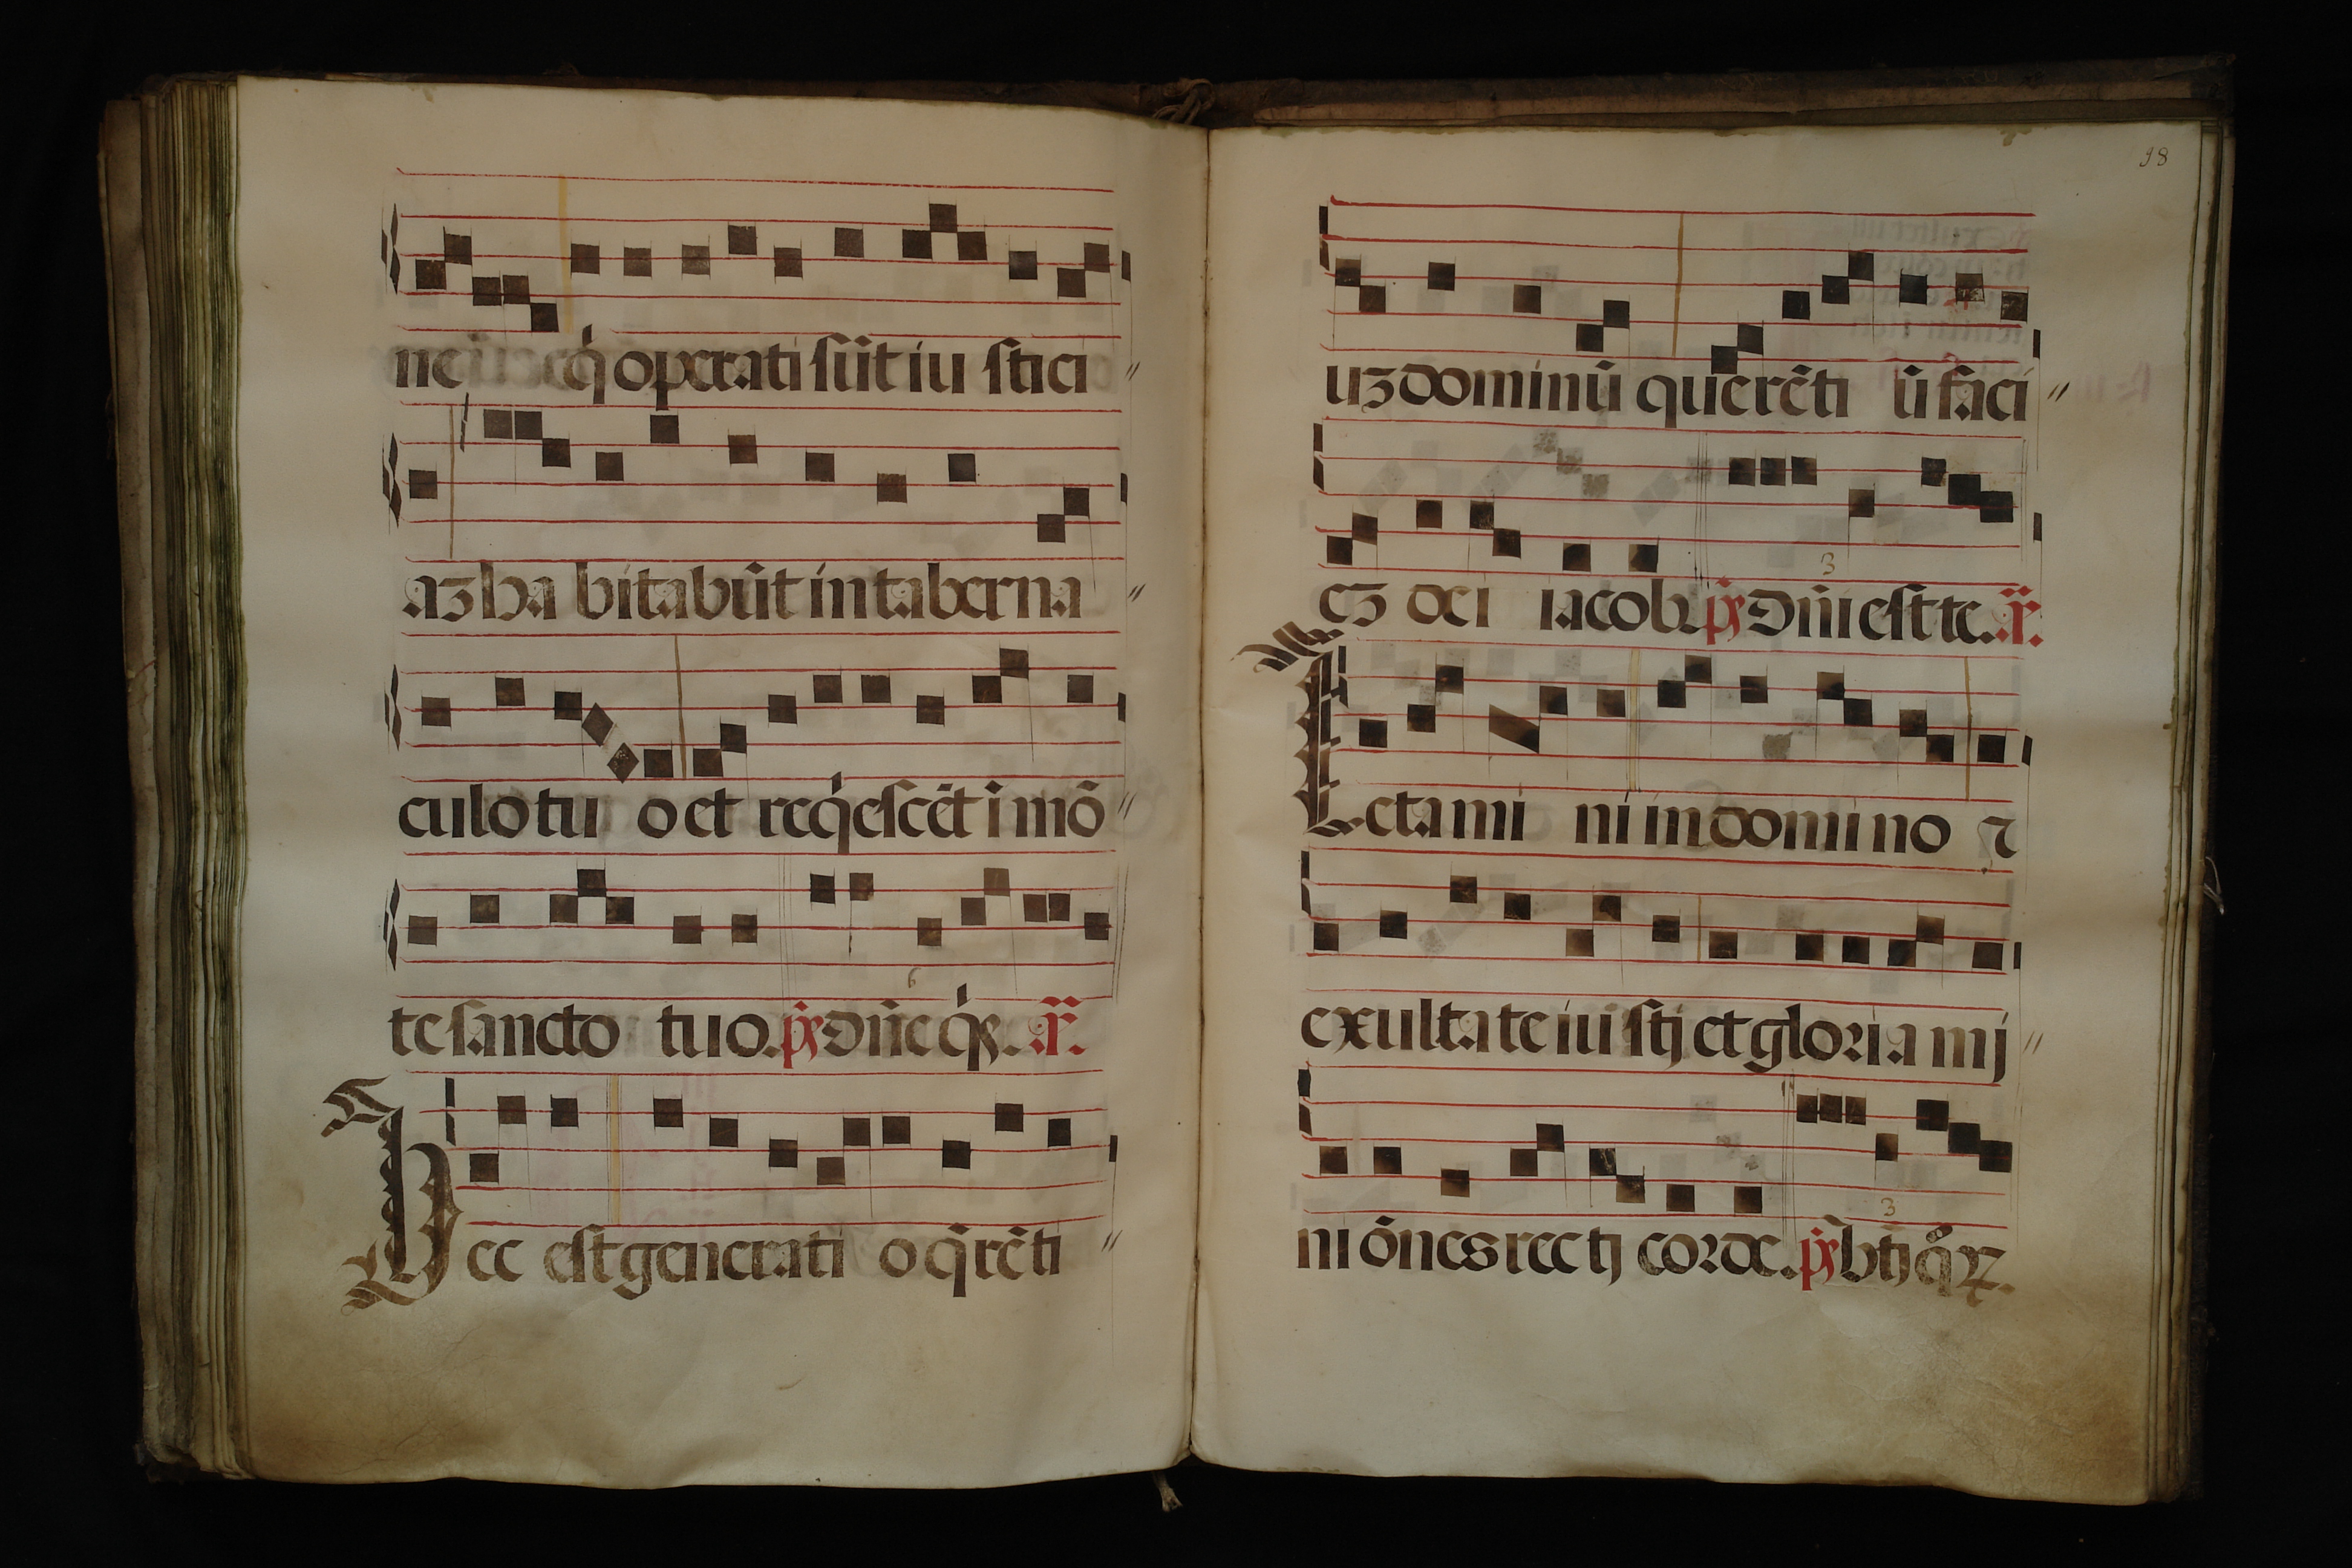 ne q̇ operati sūt iu stici
az ha bitabūt in taberna
culo tu o et reqͥescēt ī mō
te sancto tuo. p̃s Dñe qͥs. añ.
Hec est generati o q̄rēti
98
uz dominū querēti ū faci
ez dei iacob. p̃s Dñi est te. añ.
Letami ni in domino ⁊
exultate iu stj et gloria mj
ni ōnes rectj corde. p̃s btj qͦꝝ.